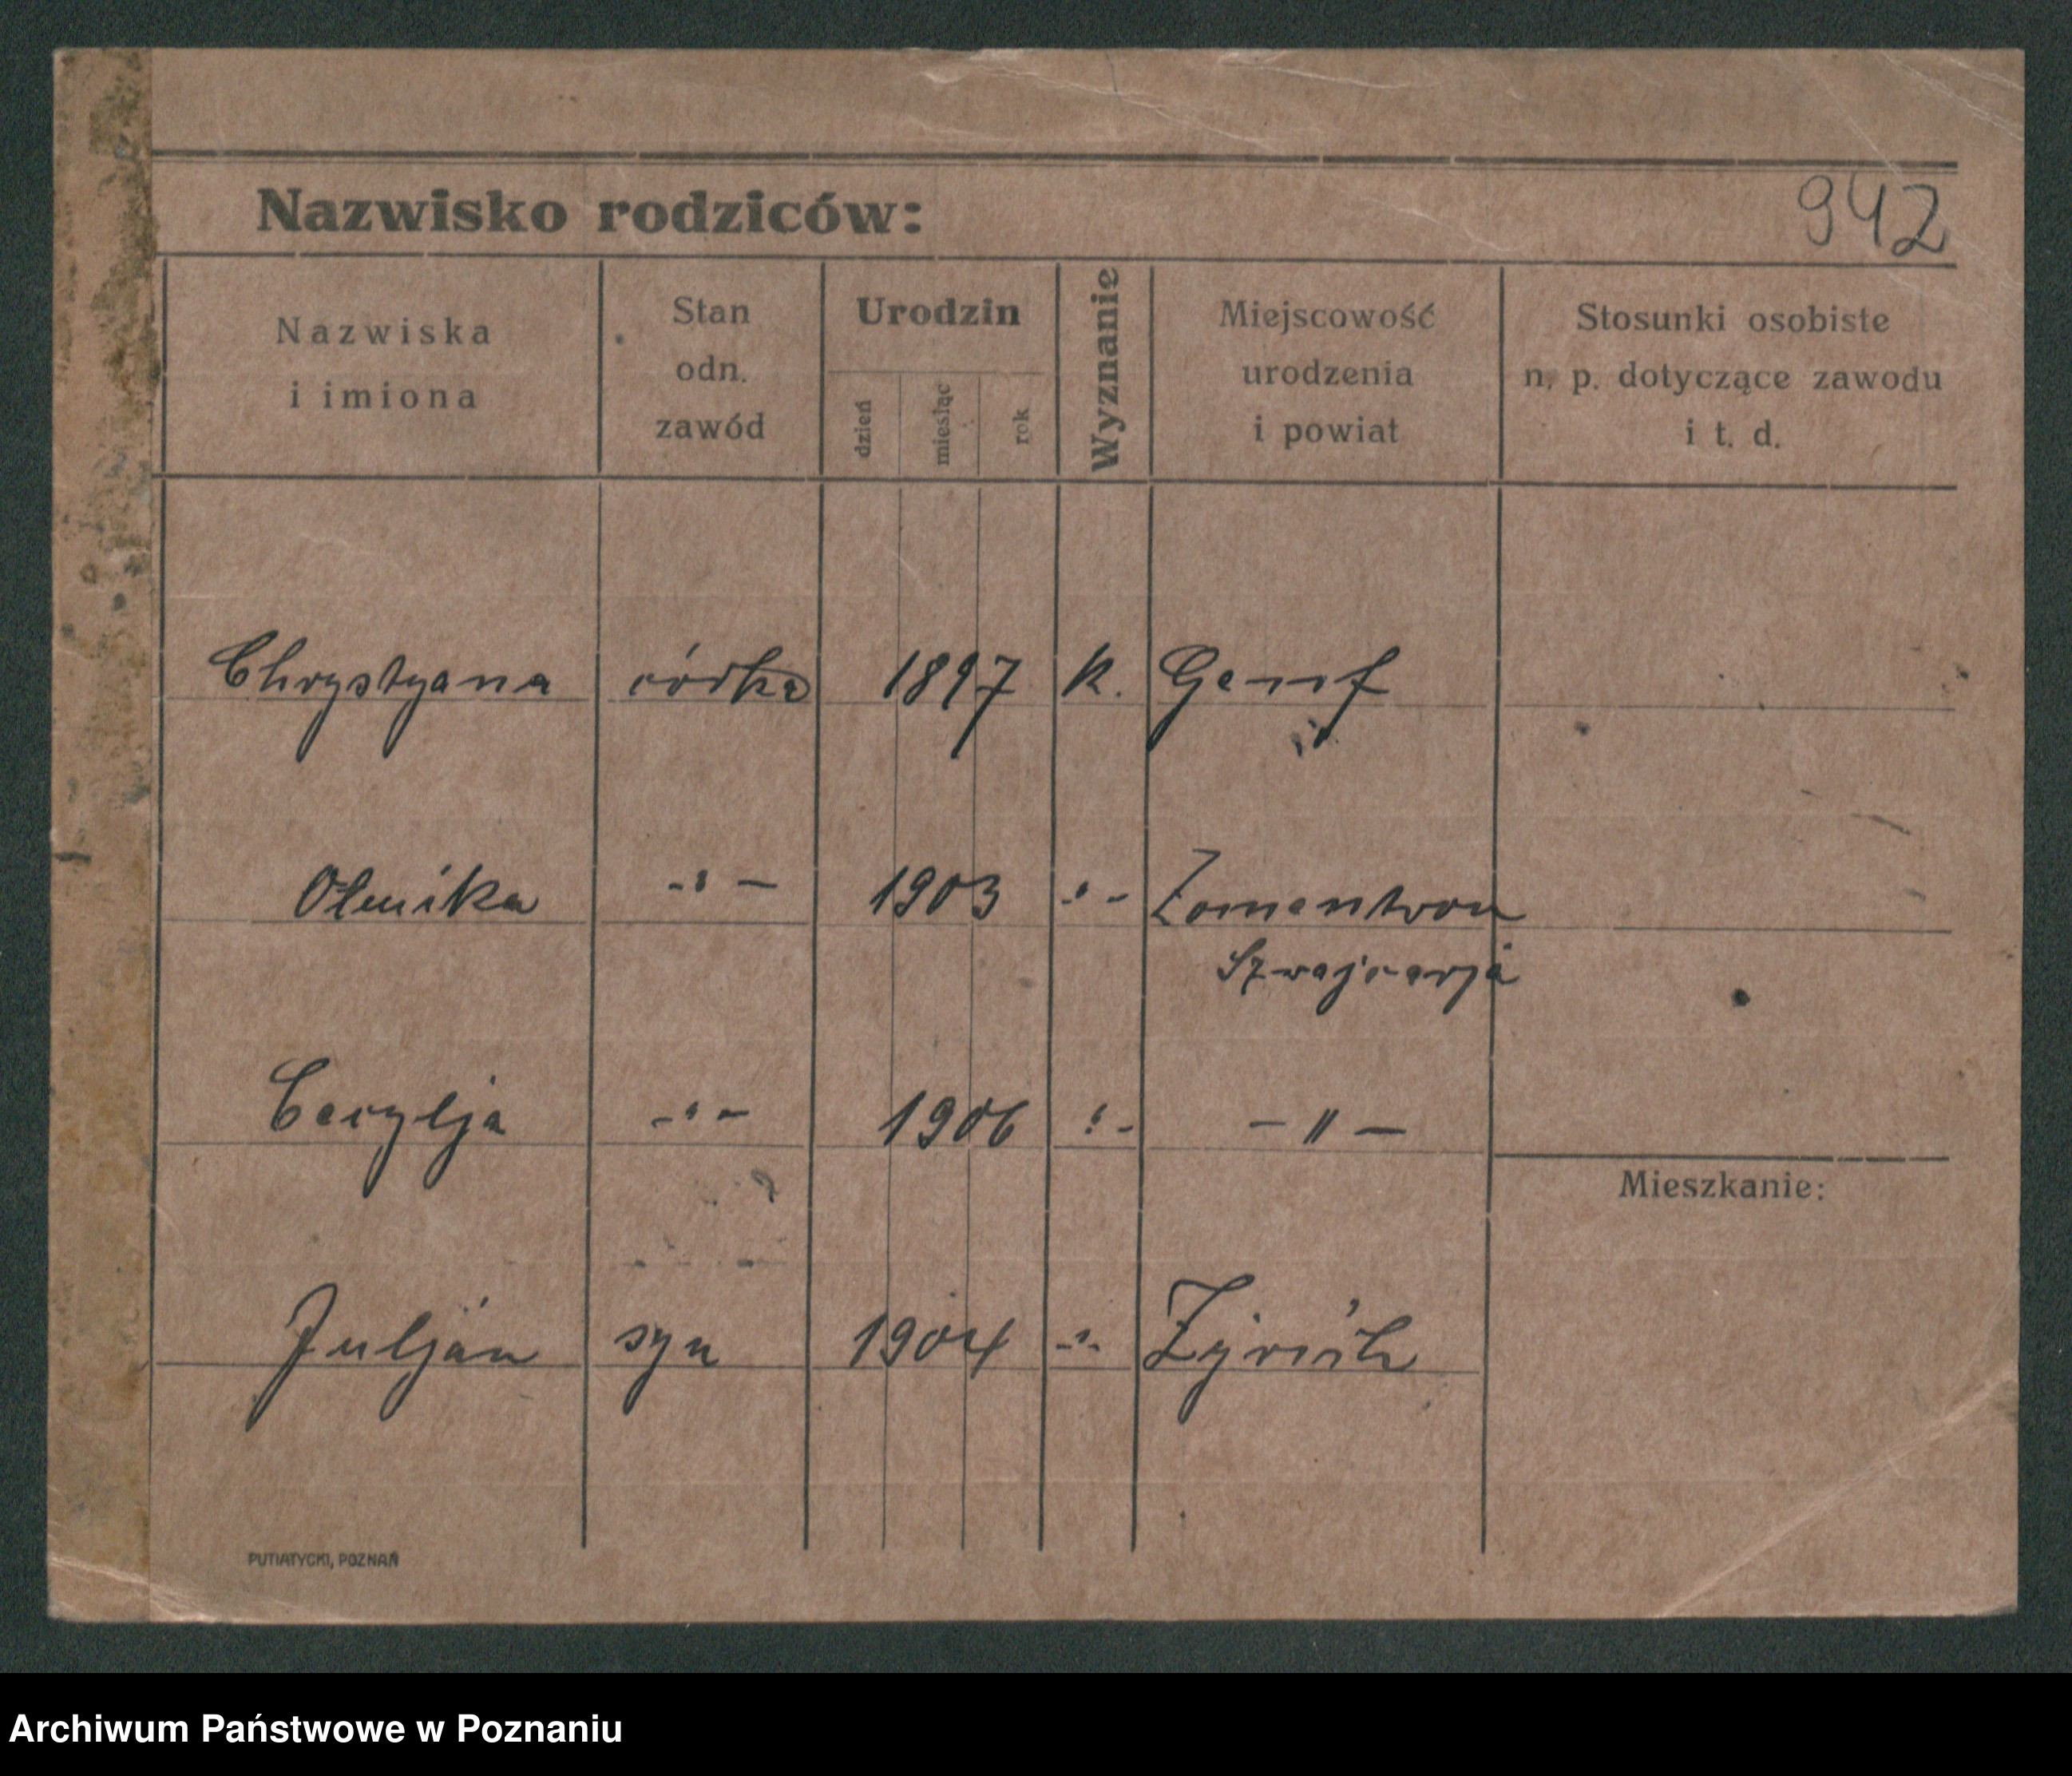 Nazwisko rodziców:
942
Nazwiska i imiona
Stan odn. zawód
Urodzin
dzień
miesiąc
rok
Wyznanie
Miejscowość urodzenia i powiat
Stosunki osobiste n. p. dotyczące zawodu i t. d.
Chrystyana córka 1897 k. Genf
1903
Szwajcarja
Cecylja -"- 1906 "- - " -
Mieszkanie:
Juljan syn 1904 -"-
PUTIATYCKI, POZNAŃ
Archiwum Państwowe w Poznaniu